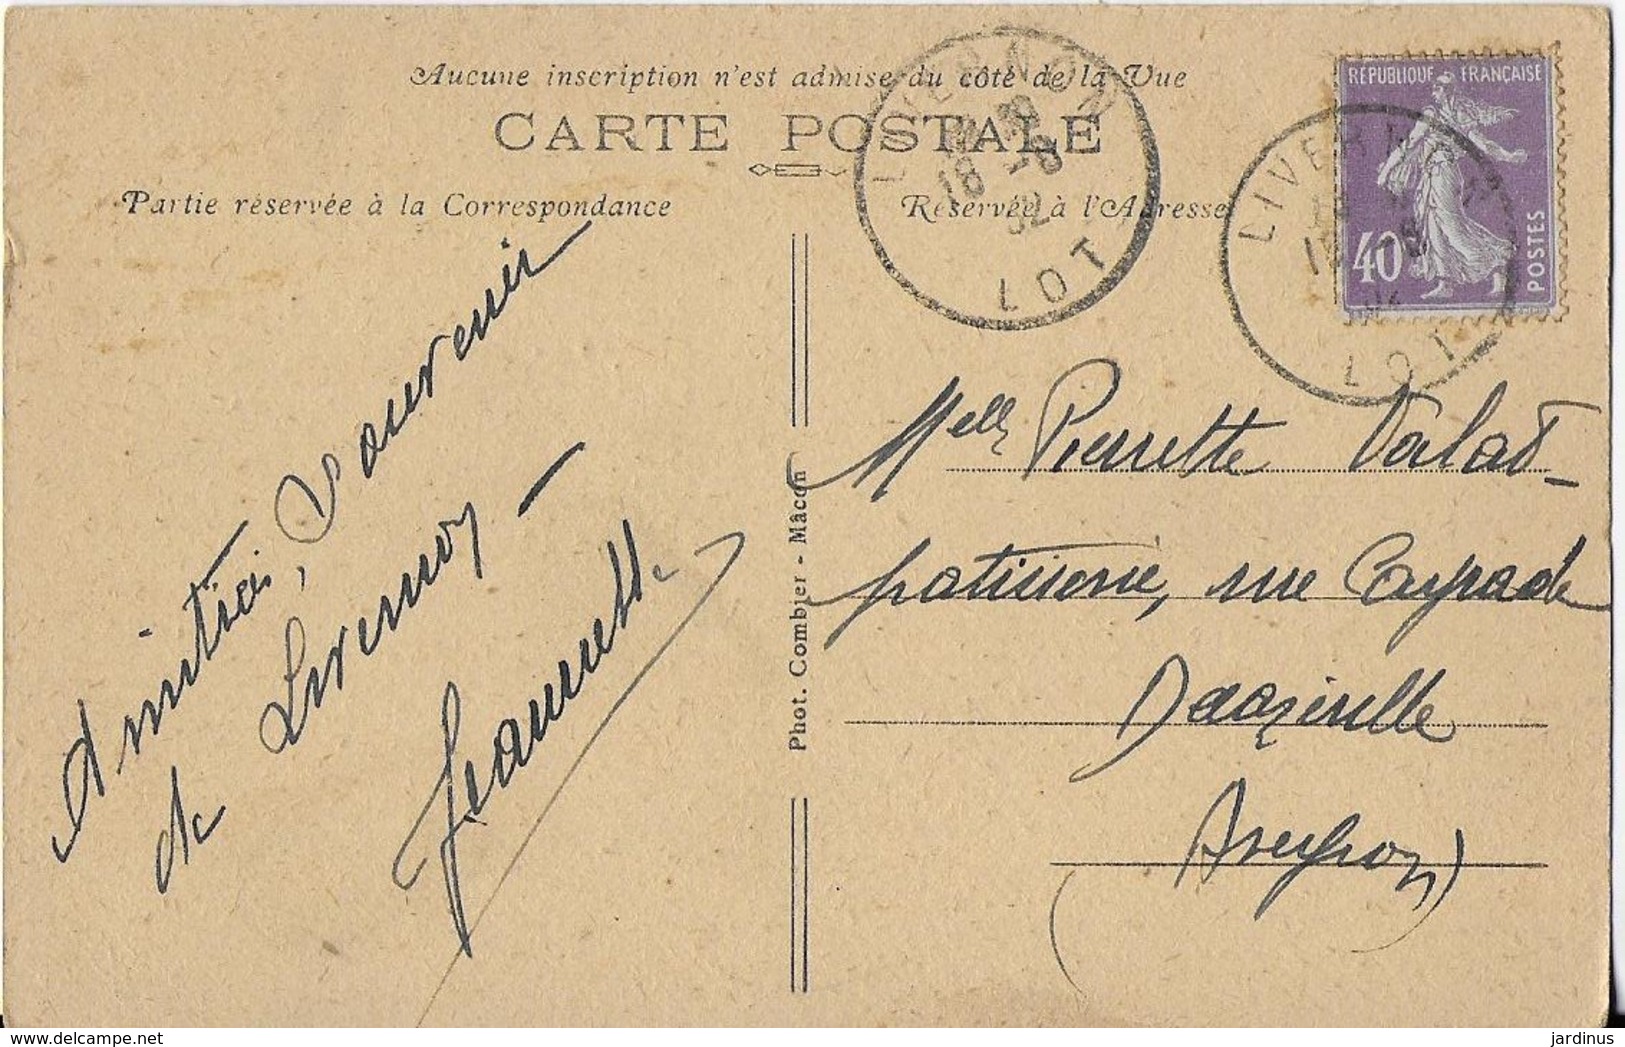 Aucune inscription n'est admise du côté de la Vue
CARTE POSTALE
Partie réservée à la Correspondance
Réservée à l'Adresse
LIVERNON
18 -8
32
LOT
RÉPUBLIQUE FRANÇAISE
40
POSTES
LIVERNON
LOT
Amitiés, Souvenir
de Livernon -
Jeannette
Phot. Combier - Mâcon
Melle Pierrette Valat -
patisserie, rue Cayrade
Decazeville
(Aveyron)
delcampe.net
jardinus